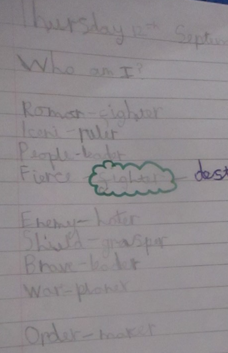 Thursday 12th Septem
Who am I?
Roman-fighter
Iceni-ruler
People-leader
Fierce fighter dest
Enemy-hater
Shield-grasper
Brave-leader
War-planer
Order-maker